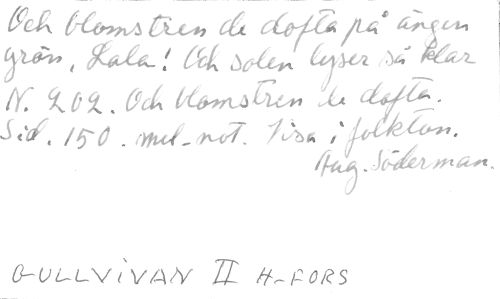 Och blomstren de dofta på ängen
grön, Lala! Och solen lyser så klar
N. 202. Och blomstren de dofta.
Sid. 150. mel-not. Visa i folkton.
Aug. Söderman.
GULLVIVAN II H-FORS